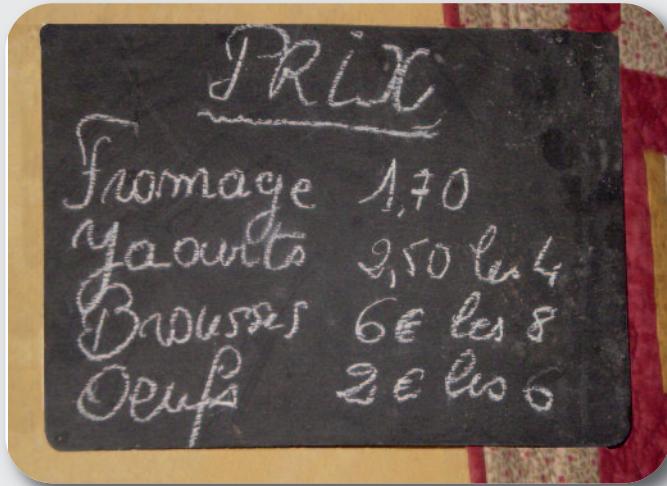 PRiX
Fromage 1,70
Yaourts 2,50 les 4
Brousses 6€ les 8
Oeufs 2€ les 6